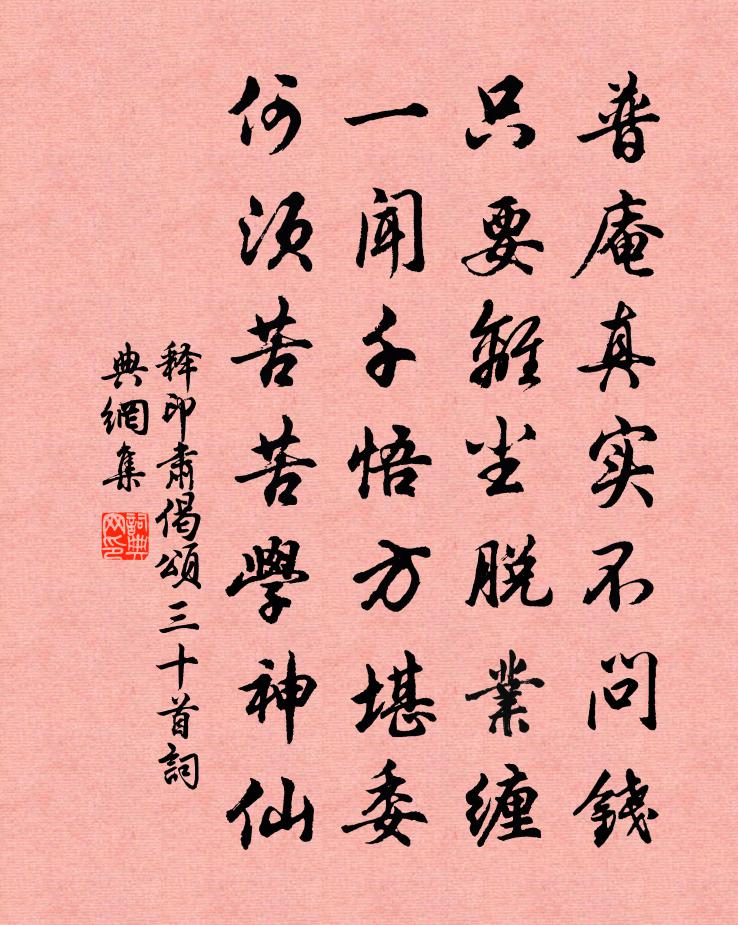 普庵真实不问錢
只要離尘脱業缠
一闻千悟方堪委
何须苦苦學神仙
释印肃偈颂三十首詞
典網集
詞典网印